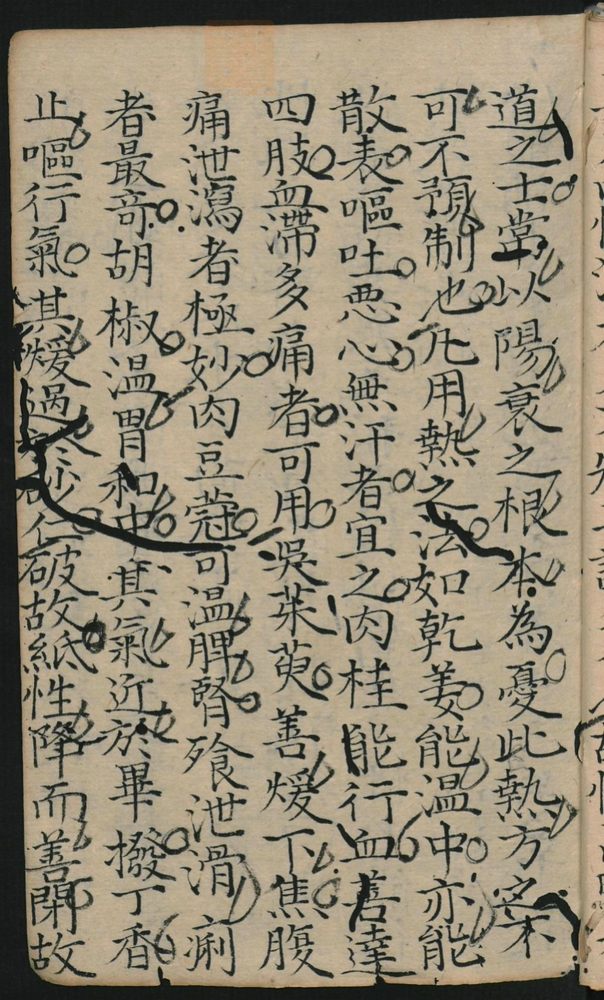 道之士當以陽衰之根本為憂此熱方之不
可不預制也凡用熱之法如乾姜能溫中亦能
散表嘔吐惡心無汗者宜之肉桂能行血善達
四肢血滯多痛者可用吳茱萸善煖下焦腹
痛泄瀉者極妙肉豆蔻可溫脾腎飱泄滑痢
者最竒胡椒温胃和中其氣近於畢撥丁香
止嘔行氣其煖過於砂仁破故紙性降而善閉故